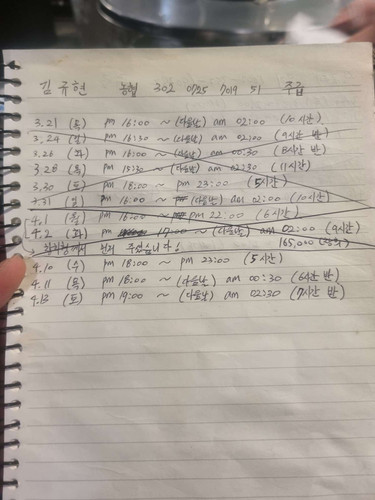 김규현 농협 302 0725 7019 51 주급
3.21 (목) pm 16:00 ~ (다음날) am 02:00 (10시간)
3.24 (일) pm 16:30 ~ (다음날) am 02:00 (9시간 반)
3.26 (화) pm 16:00 ~ (다음날) am 00:30 (8시간 반)
3.28 (목) pm 15:30 ~ (다음날) am 02:30 (11시간)
3.30 (토) pm 18:00 ~ pm 23:00 (5시간)
3.31 (일) pm 16:00 ~ (다음날) am 02:00 (10시간)
4.1 (월) pm 16:00 ~ pm 22:00 (6시간)
4.2 (화) pm 17:00 ~ (다음날) am 02:00 (9시간)
먼저 주셨습니다 165,000
4.10 (수) pm 18:00 ~ pm 23:00 (5시간)
4.11 (목) pm 18:00 ~ (다음날) am 00:30 (6시간 반)
4.13 (토) pm 19:00 ~ (다음날) am 02:30 (7시간 반)